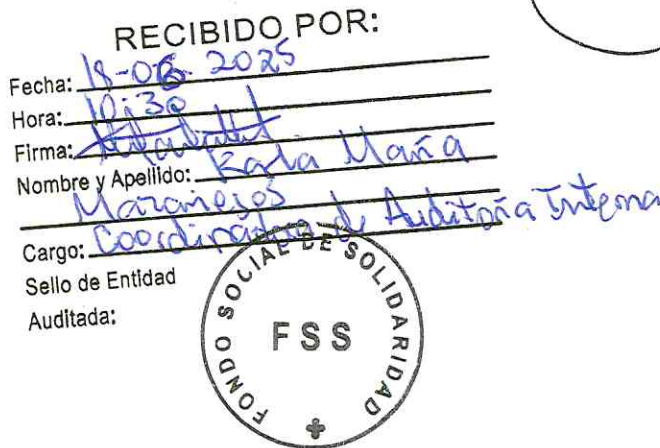 RECIBIDO POR:
Fecha: 18-06-2025
Hora: 10:30
Firma:
Nombre y Apellido: Karla María
Cargo: Coordinadora de Auditoría Interna
Sello de Entidad
Auditada:
FONDO SOCIAL DE SOLIDARIDAD
FSS